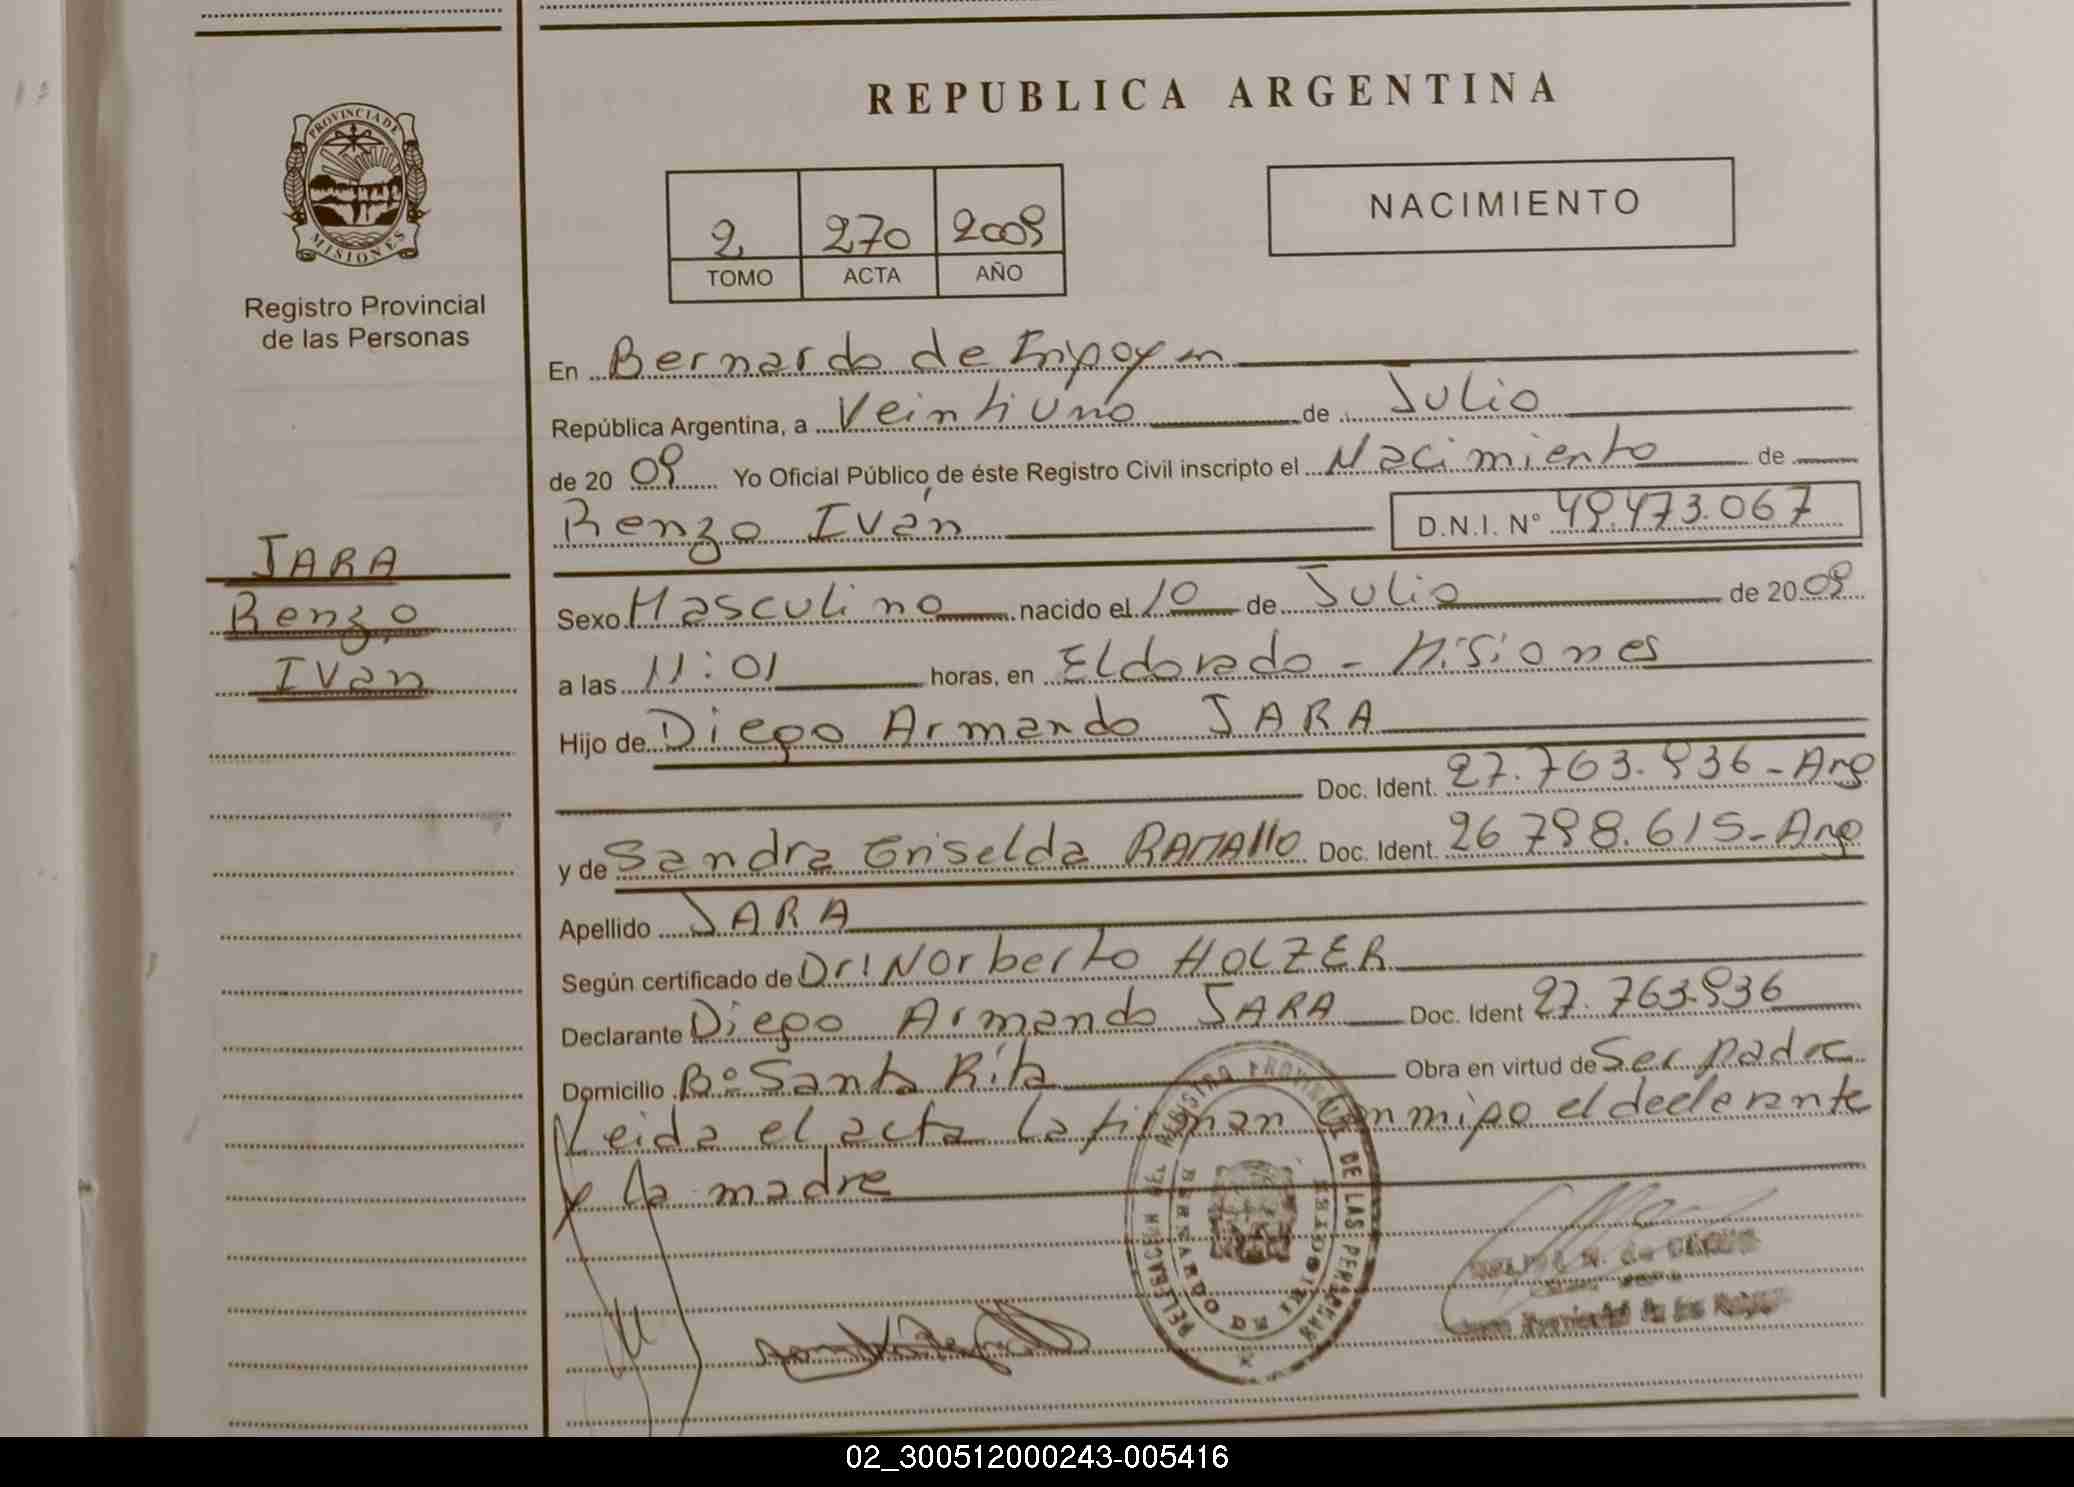 REPUBLICA ARGENTINA
PROVINCIA DE
MISIONES
Registro Provincial
de las Personas
2 270 2009
TOMO ACTA AÑO
NACIMIENTO
En Bernardo de Irigoyen
República Argentina, a Veintiuno de Julio
de 20 09 Yo Oficial Público, de éste Registro Civil inscripto el Nacimiento de
Renzo Iván D.N.I. N° 49.473.067
JARA
Renzo
Iván
Sexo Masculino nacido el 10 de Julio de 20 09
a las 11:01 horas, en Eldorado - Misiones
Hijo de Diego Armando JARA
Doc. Ident. 27.763.936 - Arg
y de Sandra Griselda RAMAllO Doc. Ident. 26 798.615 - Arg
Apellido JARA
Según certificado de Dr. Norberto HOLZER
Declarante Diego Armando JARA Doc. Ident 27.763.936
Domicilio B° Santa Rita Obra en virtud de Ser padre
Leida el acta la firman conmigo el declarante
y la madre
REGISTRO PROVINCIAL DE LAS PERSONAS
BERNARDO DE IRIGOYEN
02_300512000243-005416